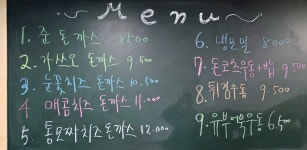 ~ Menu ~
1. 준 돈까스 8500
2. 가쓰오 돈까스 9.500
3. 눈꽃치즈 돈까스 10.500
4 매콤치즈 돈까스 11.000
5 통모짜치즈돈까스 12.000
6. 냉모밀 8000
7. 돈코츠우동+밥 9.500
8. 튀김우동 9.500
9. 유부어묵우동 8.500